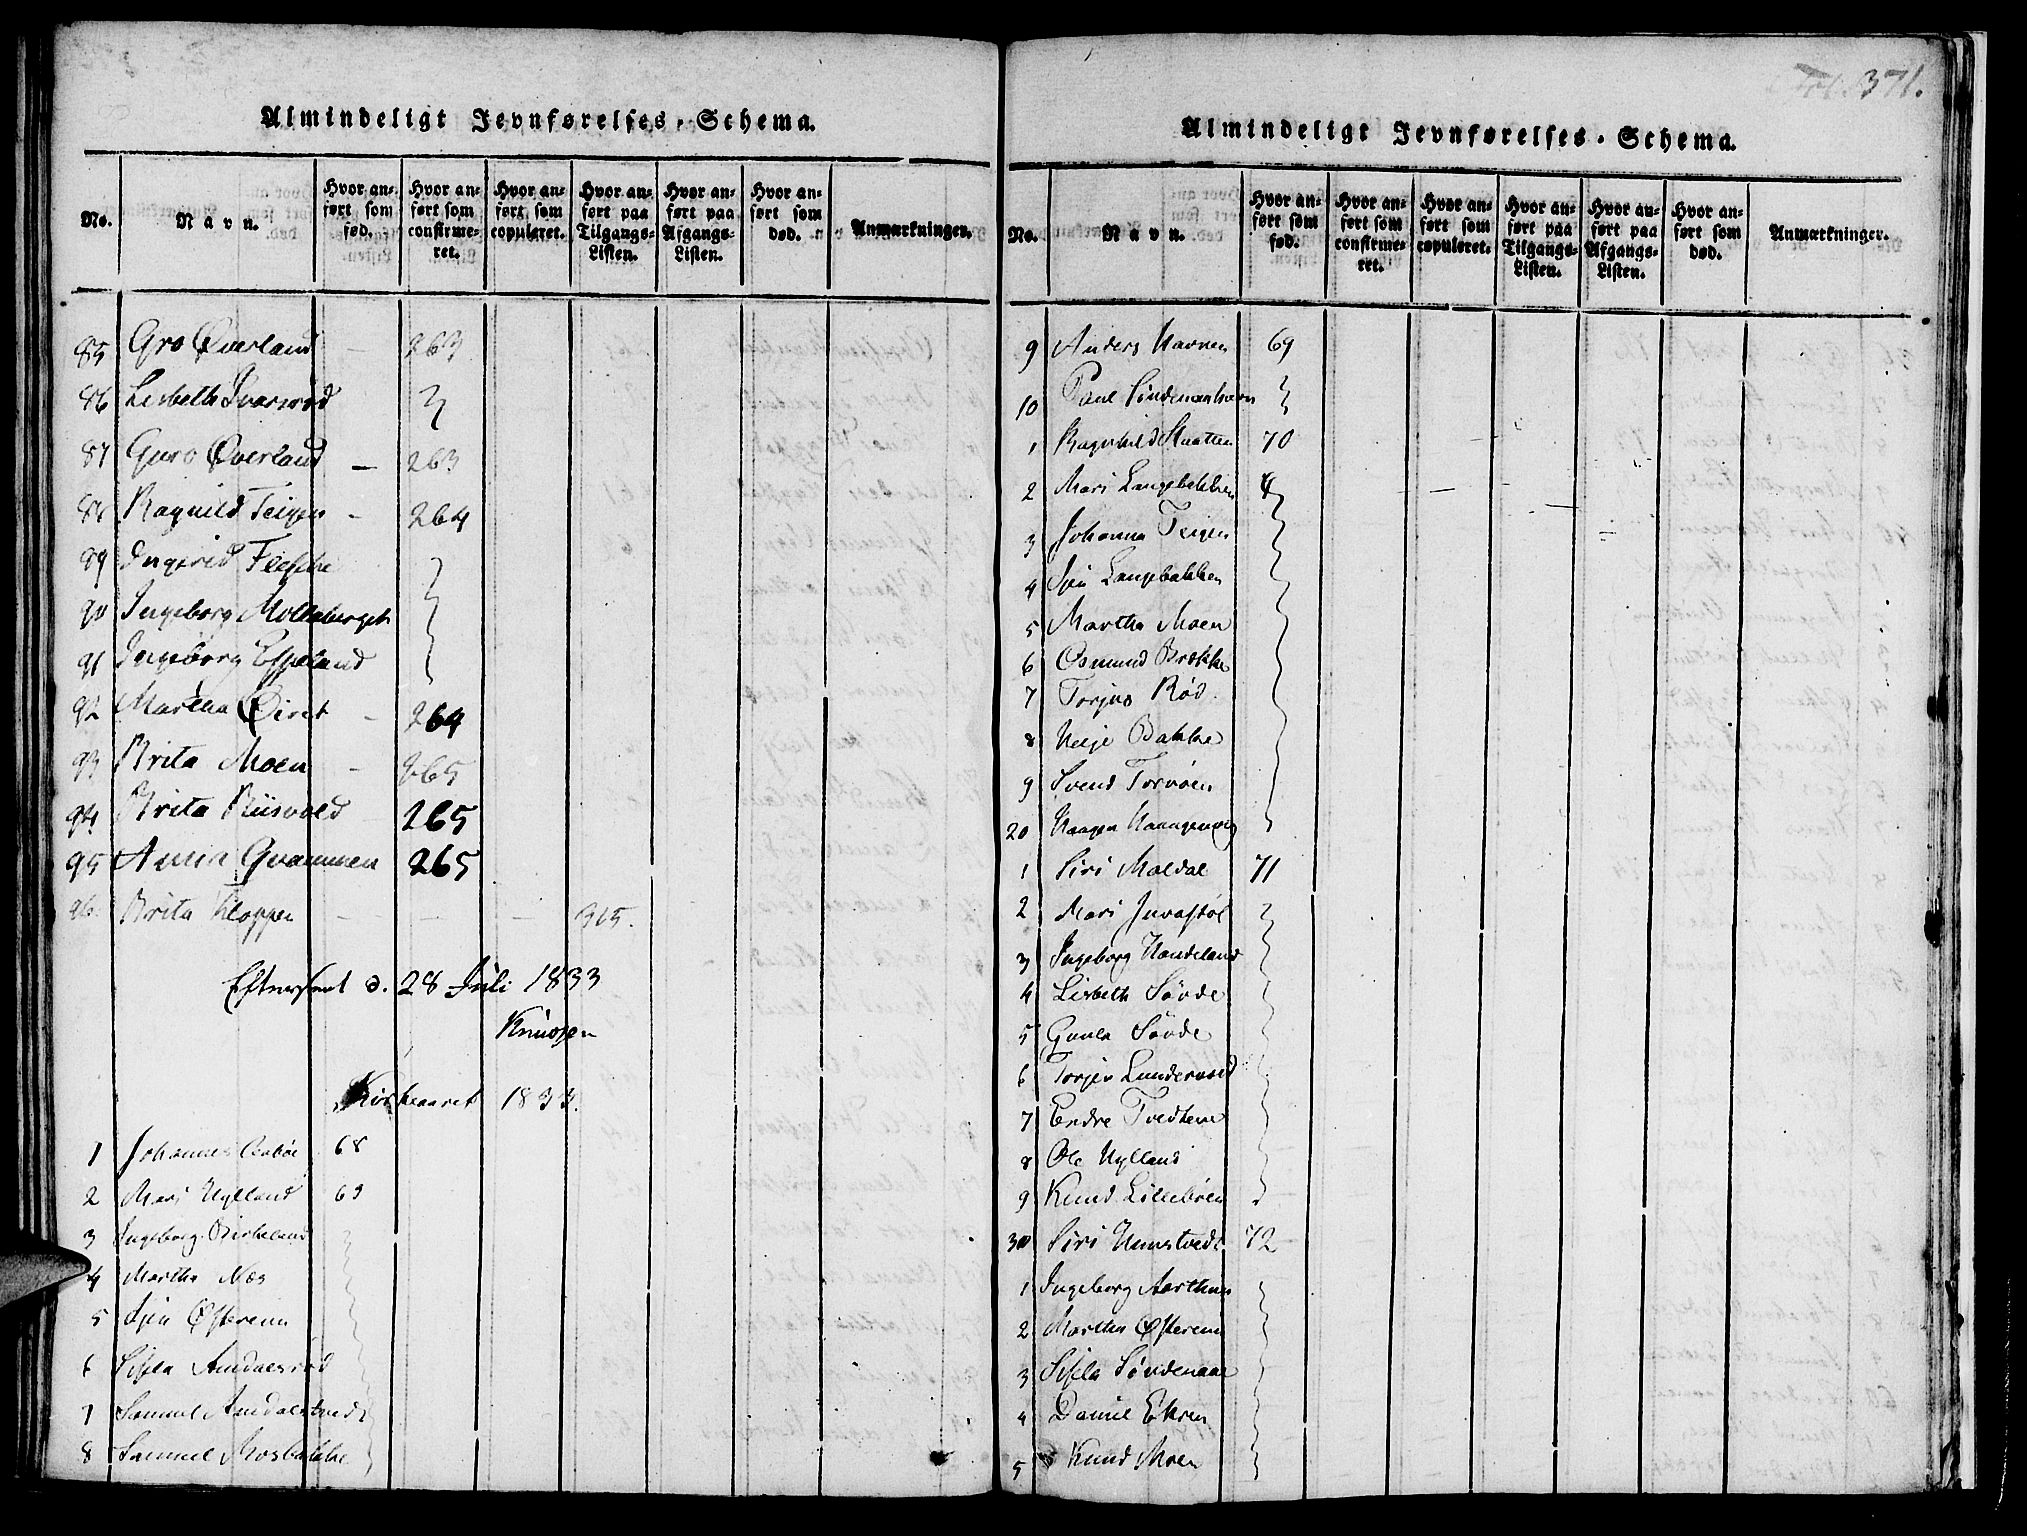 Almindeligt Jevnførelses-Schema.
No. Navn. Hvor anført som fød. Hvor anført som confirmeret. Hvor anført som copuleret. Hvor anført paa Tilgangs-Listen. Hvor anført paa Afgangs-Listen. Hvor anført som død. Anmærkninger.
85 Gro Øverland 263
86 Lisbeth
87 Guro Øverland — 263
88 Ragnild Teigen - 264
89 Ingerid
90 Ingeborg
91 Ingeborg Espeland
92 Martha - 264
93 Brita Moen - 265
94 Brita Riisvold 265
95 Anna Qvammen 265
96. Brita Kloppen - - - 315.
Efterseet d. 28 Juli 1833
Knudsen
Kirkeaaret 1833.
1 Johannes 68
2 Mari Hylland 69
3 Ingeborg Birkeland
4 Martha Næs
5 Siri Østerem
6 Sisela
7 Samuel
8 Samuel Mosbakke
Fol. 371.
Almindeligt Jevnførelses-Schema.
No. Navn. Hvor anført som fød. Hvor anført som confirmeret. Hvor anført som copuleret. Hvor anført paa Tilgangs-Listen. Hvor anført paa Afgangs-Listen. Hvor anført som død. Anmærkninger.
9 Anders Havnen 69
10 Paul
1 Ragnhild 70
2 Mari Langebakken
3 Johanna Teigen
4 Siri Langebakken
5 Martha Moen
6 Osmund Brække
7 Torjus Rød.
8 Helje Bakke
9 Svend
20 Haagen
1 Siri Maldal 71
2 Mari
3 Ingeborg Handeland
4 Lisbeth Søvde
5 Gunla Søvde
6 Torjer
7 Endre Tvedtene
8 Ole Hylland
9 Knud Lillebøen
30 Siri 72
1 Ingeborg Aarthun
2 Martha Østerem
3 Sisela Søndenaae
4 Daniel Ekren
5 Knud Moen